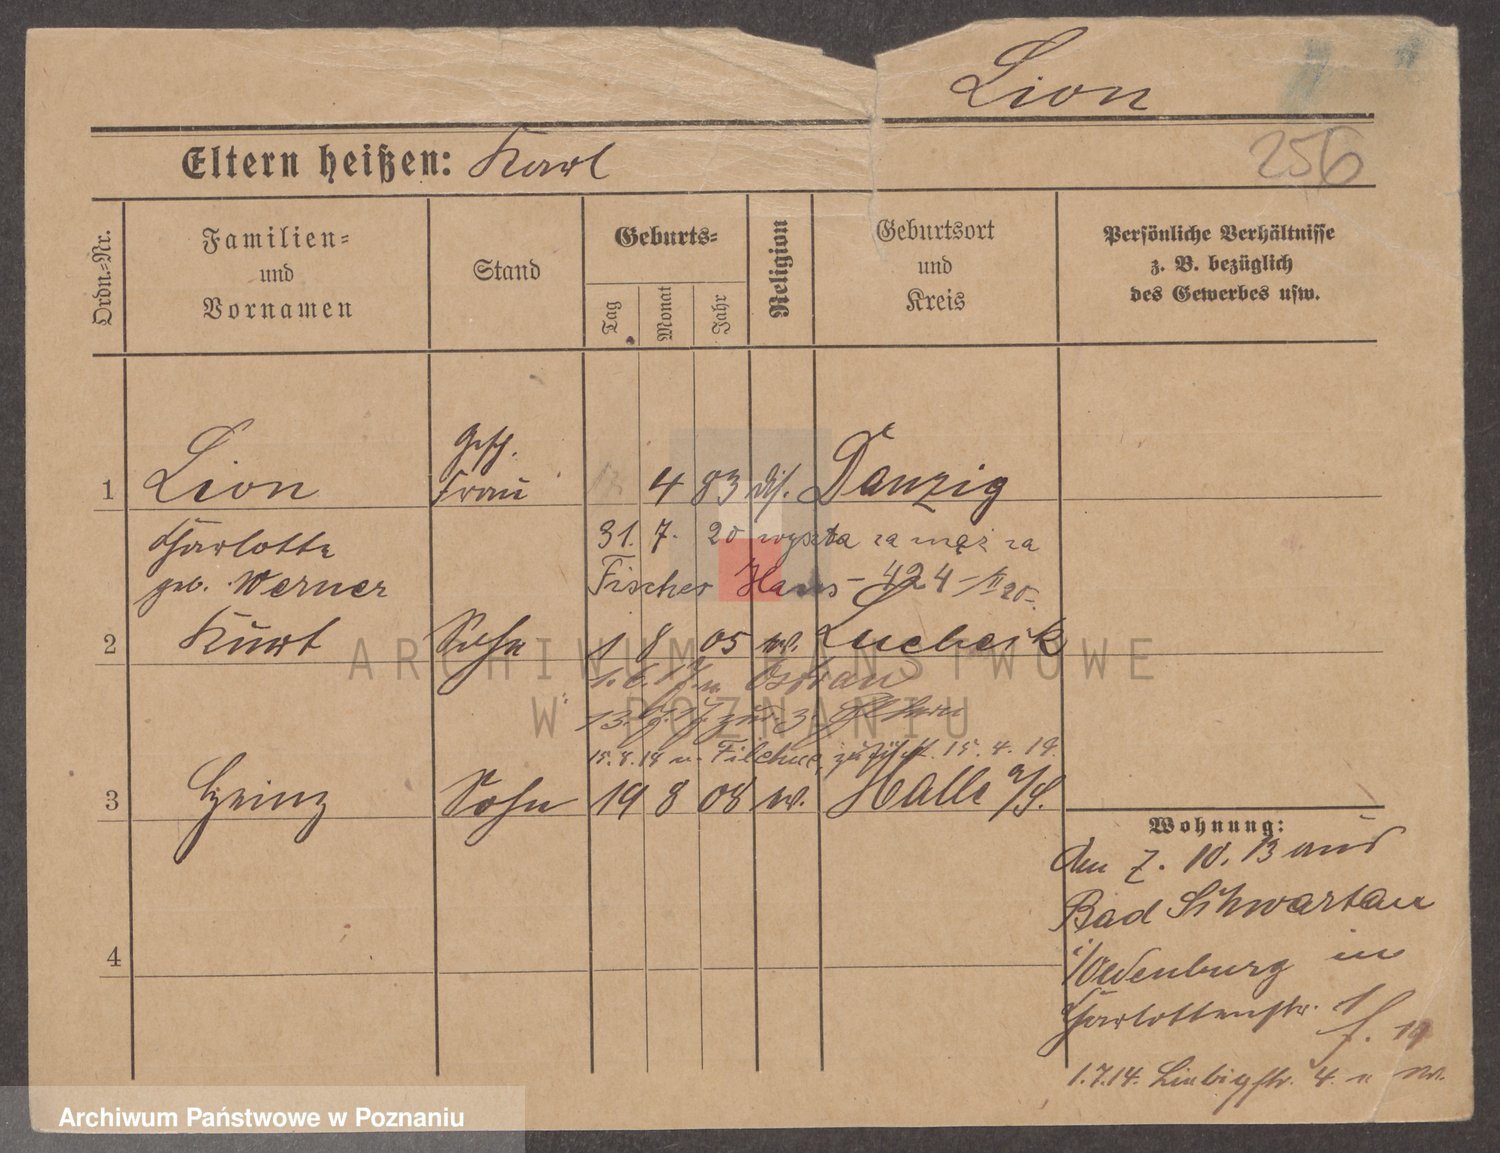 Lion
256
Eltern heißen: Karl
Ordn.-Nr.
Familien-
und
Vornamen
Stand
Geburts-
Tag
Monat
Jahr
Religion
Geburtsort
und
Kreis
Persönliche Verhältnisse
z. B. bezüglich
des Gewerbes usw.
gesch.
1 Lion Frau 4 83 dis. Danzig
Charlotte 31. 7. 20 wyszła za mąż za
geb. Werner Fischer Hans - 424
2 Kurt Sohn 1 8 05 w. Luebeck
Ostrau
13. 9. 17 zur. z. Eltern
15.8.18 n. Filehne, zurück 15. 4. 19.
3 Heinz Sohn 19 8 08 w. Halle a/S.
4
Wohnung:
den 7. 10. 13 aus
Bad Schwartau
i/Oldenburg in
Charlottenstr. 1
1.7.14. Liebigstr. 4.
ARCHIWUM PAŃSTWOWE
W POZNANIU
Archiwum Państwowe w Poznaniu